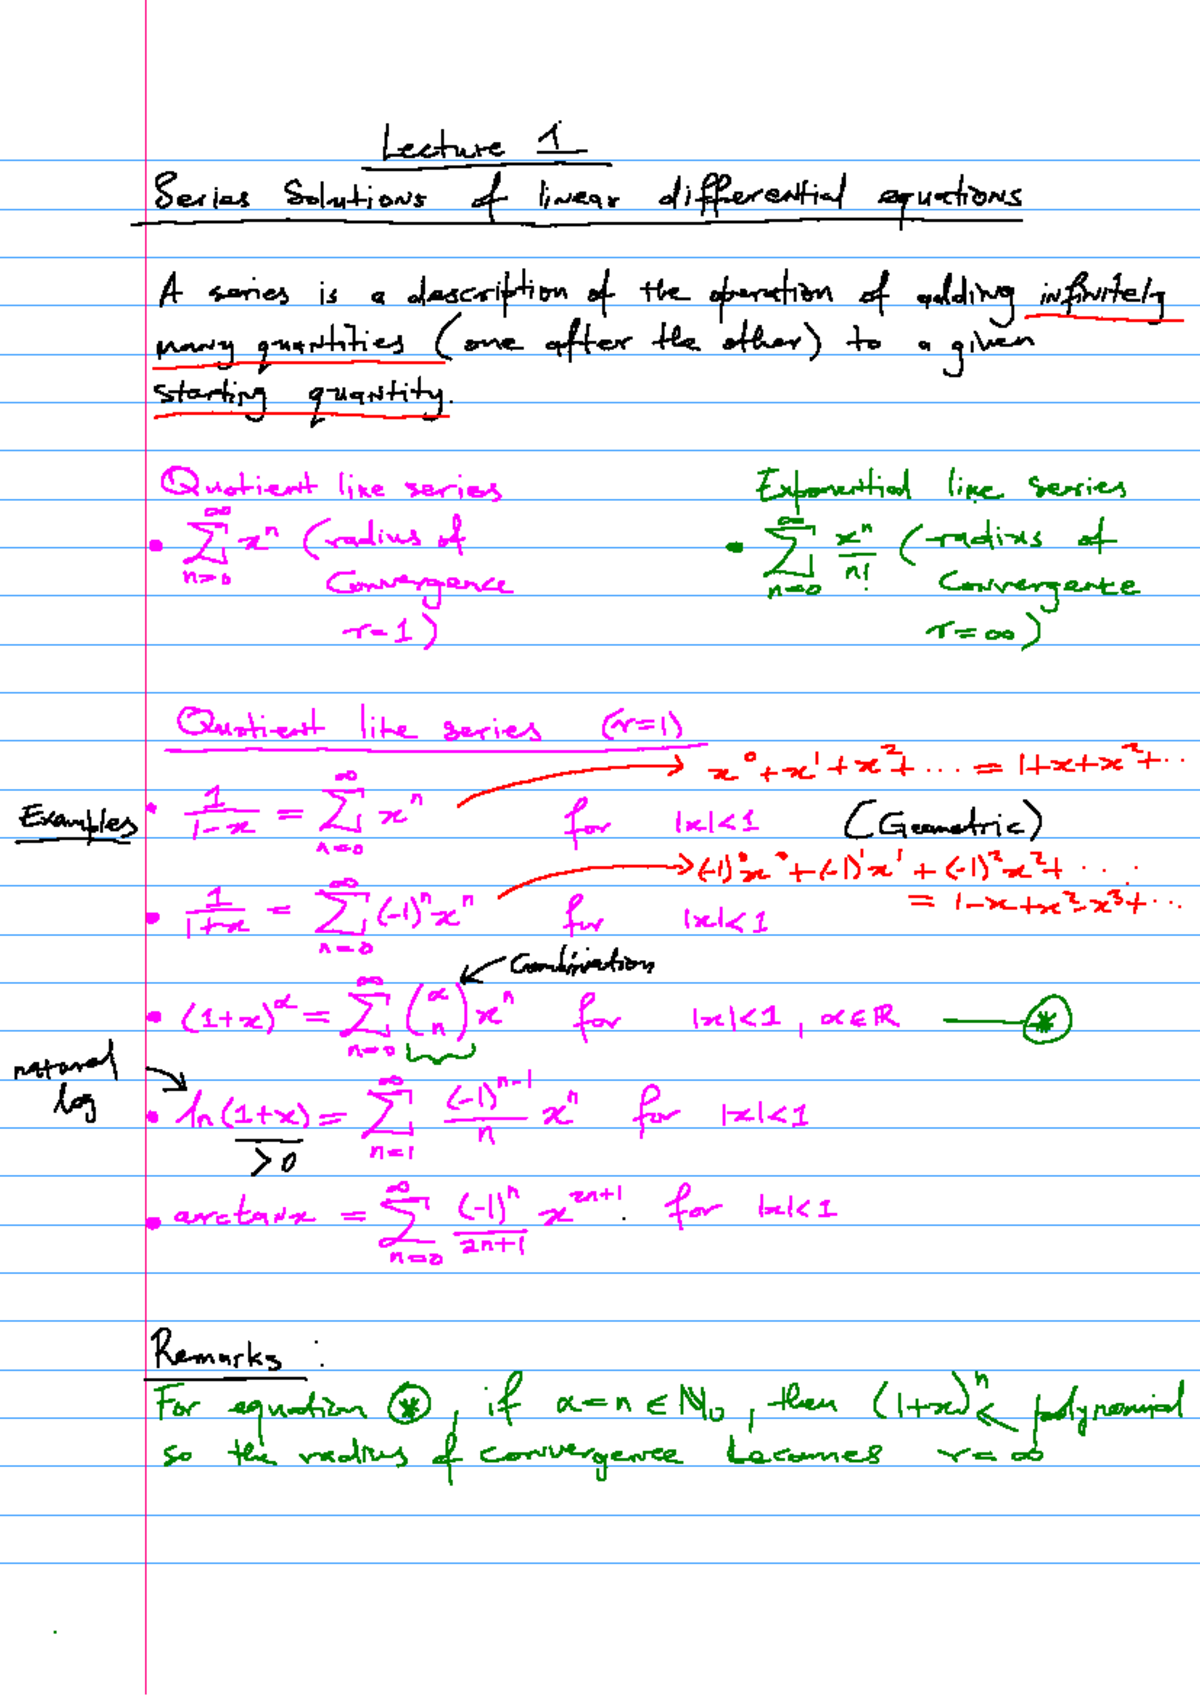 Lecture 1
Series Solutions of linear differential equations
A series is a description of the operation of adding infinitely
many quantities (one after the other) to a given
starting quantity.
Quotient like series
• ∑_{n=0}^{∞} x^n (radius of
Convergence
r=1)
Exponential like series
• ∑_{n=0}^{∞} x^n/n! (radius of
Convergence
r=∞)
Quotient like series (r=1)
Examples
• 1/(1-x) = ∑_{n=0}^{∞} x^n for |x|<1 (Geometric)
→ x^0+x^1+x^2+···· = 1+x+x^2+··
• 1/(1+x) = ∑_{n=0}^{∞} (-1)^n x^n for |x|<1
→ (-1)^0x^0+(-1)^1x^1+(-1)^2x^2+····
= 1-x+x^2-x^3+···
Combination
• (1+x)^α = ∑_{n=0}^{∞} (α n) x^n for |x|<1, α∈ℝ — ⊛
natural
log
• ln(1+x) = ∑_{n=1}^{∞} (-1)^{n-1}/n x^n for |x|<1
>0
• arctanx = ∑_{n=0}^{∞} (-1)^n/(2n+1) x^{2n+1}. for |x|<1
Remarks :
For equation ⊛, if α=n∈ℕ₀, then (1+x)^n ← polynomial
so the radius of convergence becomes r=∞